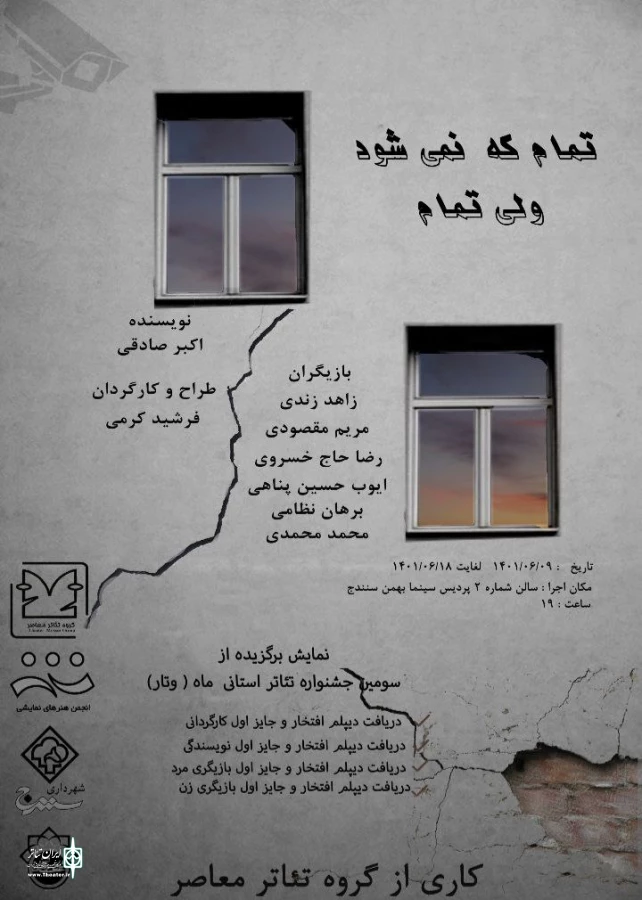 تمام که نمی شود
ولی تمام
نویسنده
اکبر صادقی
طراح و کارگردان
فرشید کرمی
بازیگران
زاهد زندی
مریم مقصودی
رضا حاج خسروی
ایوب حسین پناهی
برهان نظامی
محمد محمدی
تاریخ : ۱۴۰۱/۰۶/۰۹ لغایت ۱۴۰۱/۰۶/۱۸
مکان اجرا : سالن شماره ۲ پردیس سینما بهمن سنندج
ساعت : ۱۹
گروه تئاتر معاصر
انجمن هنرهای نمایشی
شهرداری
سنندج
نمایش برگزیده از
سومین جشنواره تئاتر استانی ماه ( وتار)
دریافت دیپلم افتخار و جایز اول کارگردانی
دریافت دیپلم افتخار و جایز اول نویسندگی
دریافت دیپلم افتخار و جایز اول بازیگری مرد
دریافت دیپلم افتخار و جایز اول بازیگری زن
ایران تئاتر
www.Theater.ir
کاری از گروه تئاتر معاصر